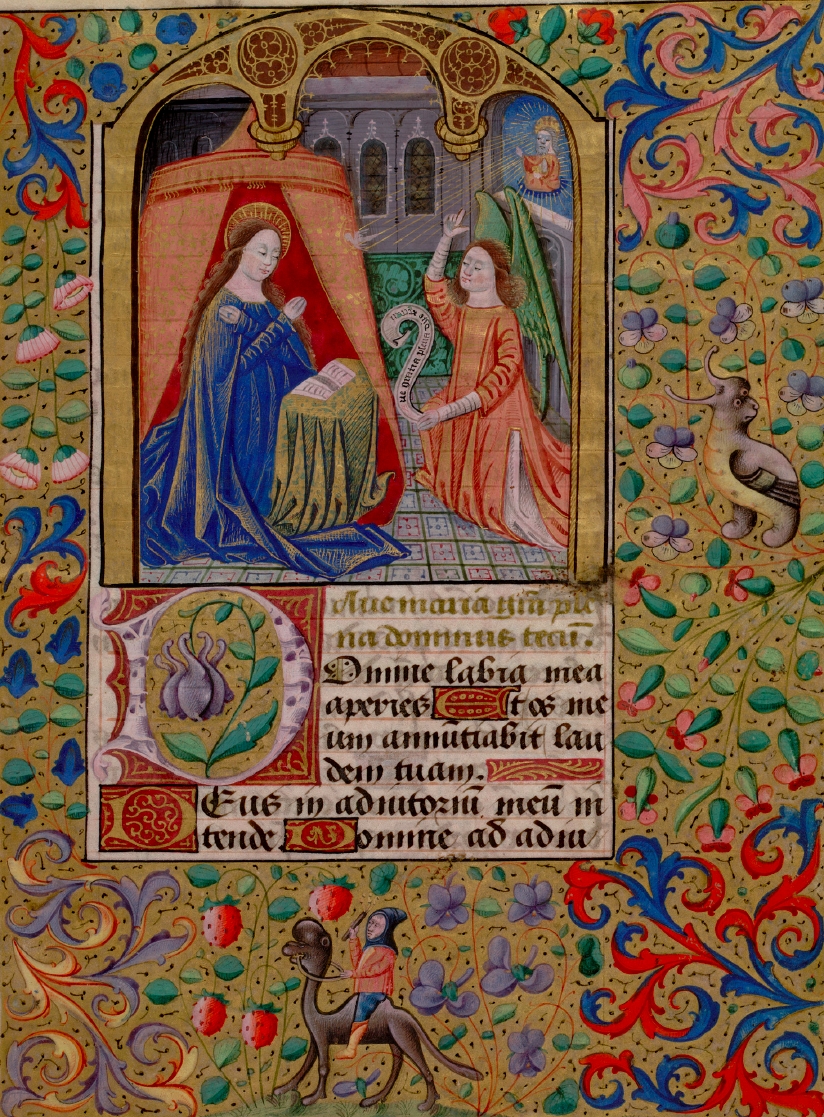 ue gratia plena
Aue maria grã ple
na dominus tecũ.
DOmine labia mea
aperies Et os me
um annũtiabit lau
dem tuam.
DEus in adiutoriũ meũ in
tende. Domine ad adiu